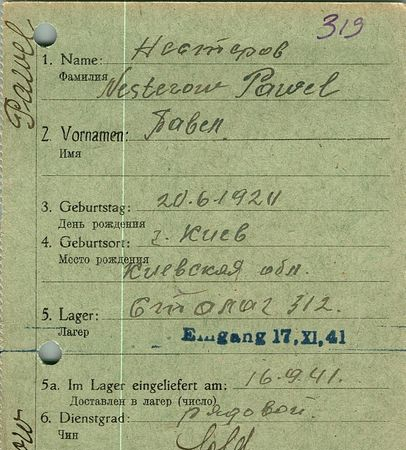 319
Pawel
1. Name: Нестеров
Фамилия Nesterow Pawel
2. Vornamen: Павел
Имя
3. Geburtstag: 20.6.1920
День рождения
4. Geburtsort: г. Киев
Место рождения Киевская обл.
5. Lager: Сталаг 312.
Лагер
Eingang 17, XI, 41
5a. Im Lager eingeliefert am: 16.9.41.
Доставлен в лагер (число)
6. Dienstgrad: рядовой.
Чин Sold
ow